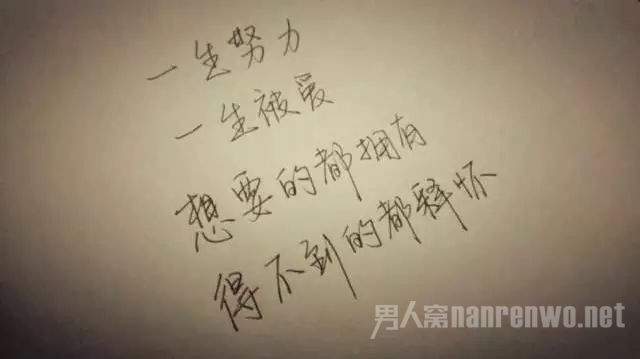 一生努力
一生被爱
想要的都拥有
得不到的都释怀
男人窝nanrenwo.net